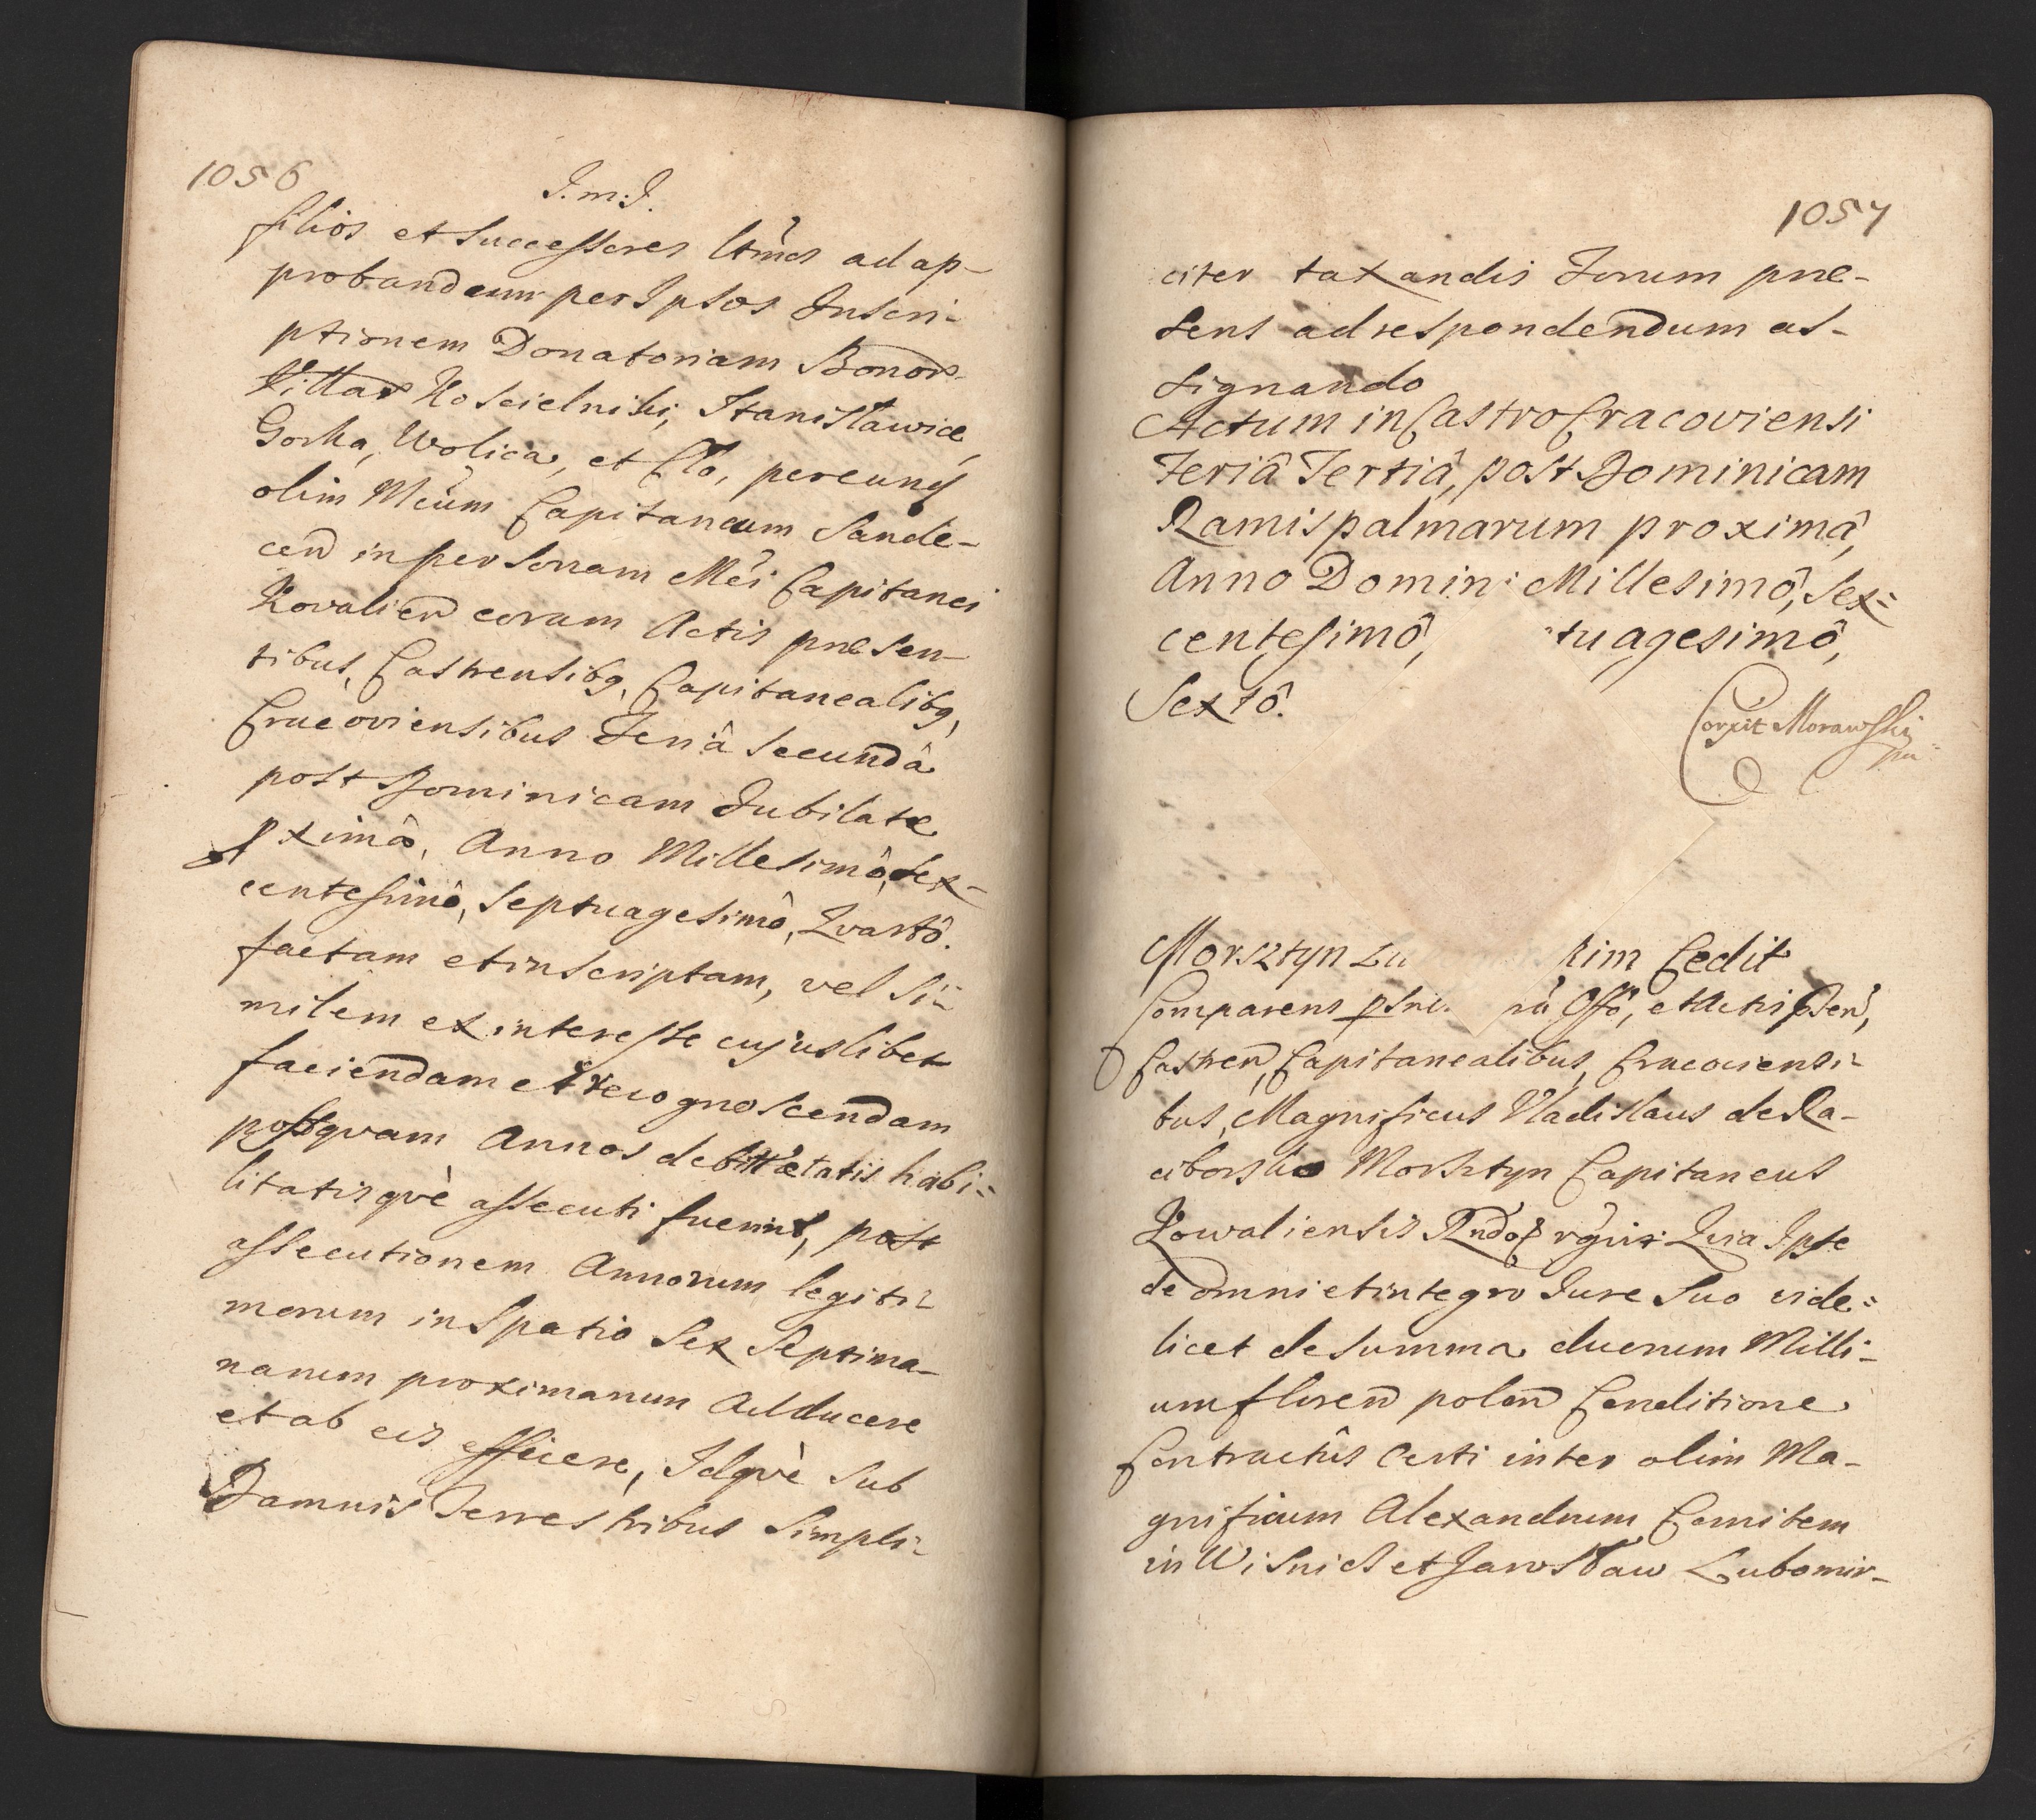 1056
J.m.J.
filios et Successores ltimos ad ap-
probandum per Ipsos Inscri-
ptionem Donatoriam Bonor
Villar Koscielniki, Stanisławice,
Gorka, Wolica, et Cło, per eund
olim Mcum Capitaneum Sande-
cen in personam Mci Capitanei
Kovalien coram Actis præsen-
tibus, Castrensibq, Capitanealibq,
Cracoviensibus Feriâ Secundâ
post Dominicam Jubilate
ximâ, Anno Millesimô, Sex-
centesimô, Septuagesimô, Qvartô.
factam et inscriptam, vel Si-
milem ex interesse cujuslibet
faciendam et recognoscendam
postqvam Annos debitæ ætatis habi-
litatisqvè assecuti fuerint, post
assecutionem Annorum legiti-
morum in Spatio Sex Septima-
narum proximarum Adducere
et ab eis efficere, Idqvè Sub
Damnis Terrestribus Simpli-
1057
citer taxandis Forum præ-
sens ad respondendum as-
signando
Actum in Castro Cracoviensi
Feriâ Tertiâ, post Dominicam
Ramispalmarum proximâ,
Anno Domini Millesimô, Sex=
centesimô, tuagesimô,
Sextô.
Correxit Morawski
mp
Morsztyn Lu kim Cedit
Comparens psni. rà Offô, et Actis psen,
Castren, Capitanealibus, Cracoviensi-
bus, Magnificus Vladislaus de Ra-
ciborsko Morsztyn Capitaneus
Kowaliensis Rndoq rgvis: Qvia Ipse
de omni et integro Jure Suo vide=
licet de Summa duorum Milli-
um floren polon Conditione
Contractûs Certi inter olim Ma-
gnificum Alexandrum Comitem
in Wisnicz et Jarosław Lubomir-